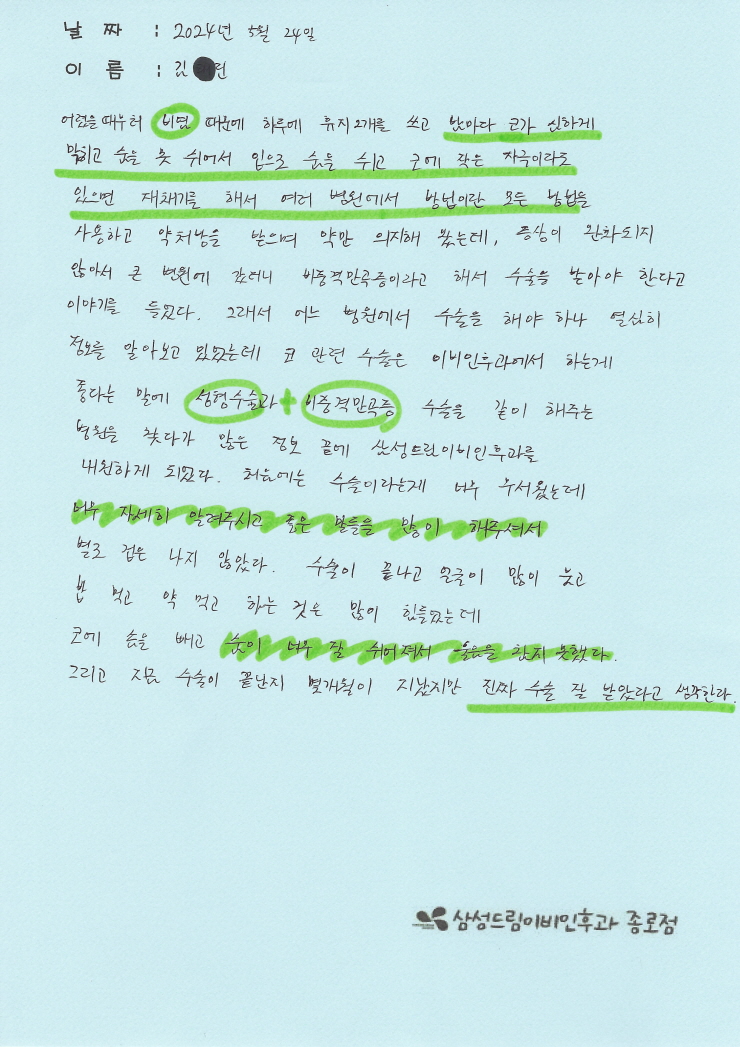 날 짜 : 2024년 5월 24일
이 름 : 김 린
어렸을 때부터 비염 때문에 하루에 휴지 2개를 쓰고 밤마다 코가 심하게
막히고 숨을 못 쉬어서 입으로 숨을 쉬고 코에 작은 자극이라도
있으면 재채기를 해서 여러 병원에서 방법이란 모든 방법을
사용하고 약처방을 받으며 약만 의지해 왔는데, 증상이 완화되지
않아서 큰 병원에 갔더니 비중격만곡증이라고 해서 수술을 받아야 한다고
이야기를 들었다. 그래서 어느 병원에서 수술을 해야 하나 열심히
정보를 알아보고 있었는데 코 관련 수술은 이비인후과에서 하는게
좋다는 말에 성형수술과 + 비중격만곡증 수술을 같이 해주는
병원을 찾다가 많은 정보 끝에 삼성드림이비인후과를
내원하게 되었다. 처음에는 수술이라는게 너무 무서웠는데
너무 자세히 알려주시고 좋은 말들을 많이 해주셔서
별로 겁은 나지 않았다. 수술이 끝나고 얼굴이 많이 붓고
밥 먹고 약 먹고 하는 것은 많이 힘들었는데
코에 솜을 빼고 숨이 너무 잘 쉬어져서 울음을 참지 못했다.
그리고 지금 수술이 끝난지 몇개월이 지났지만 진짜 수술 잘 받았다고 생각한다.
삼성드림이비인후과 종로점